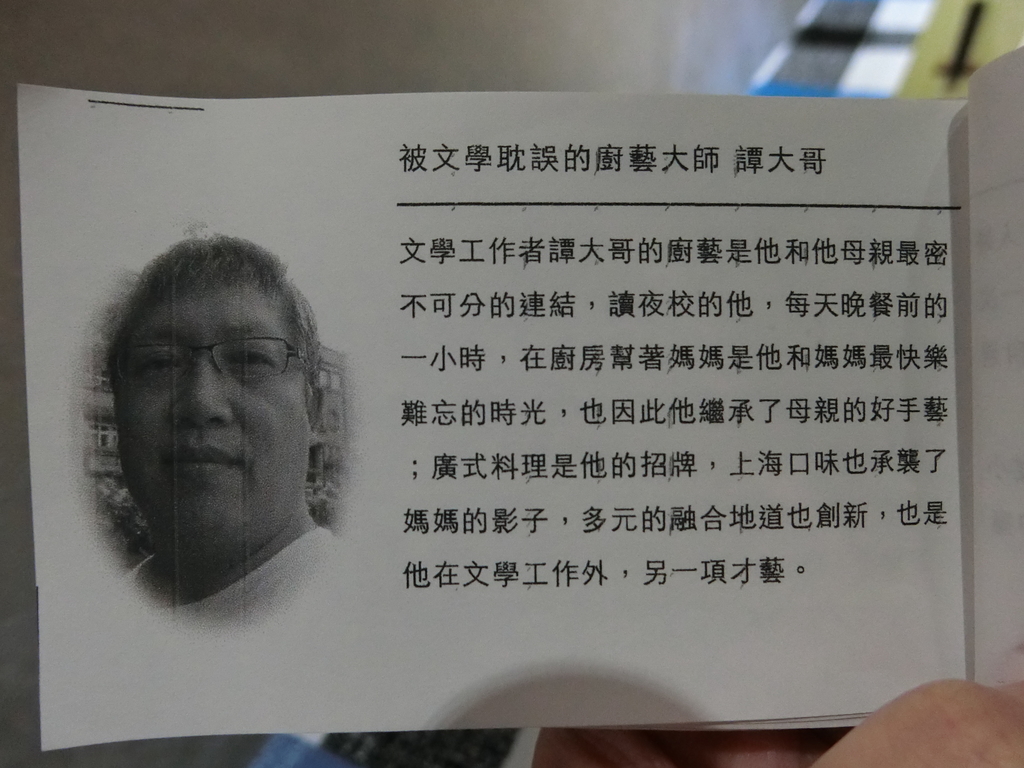 被文學耽誤的廚藝大師 譚大哥
文學工作者譚大哥的廚藝是他和他母親最密
不可分的連結，讀夜校的他，每天晚餐前的
一小時，在廚房幫著媽媽是他和媽媽最快樂
難忘的時光，也因此他繼承了母親的好手藝
；廣式料理是他的招牌，上海口味也承襲了
媽媽的影子，多元的融合地道也創新，也是
他在文學工作外，另一項才藝。